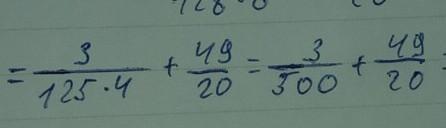 = 3/(125·4) + 49/20 = 3/500 + 49/20